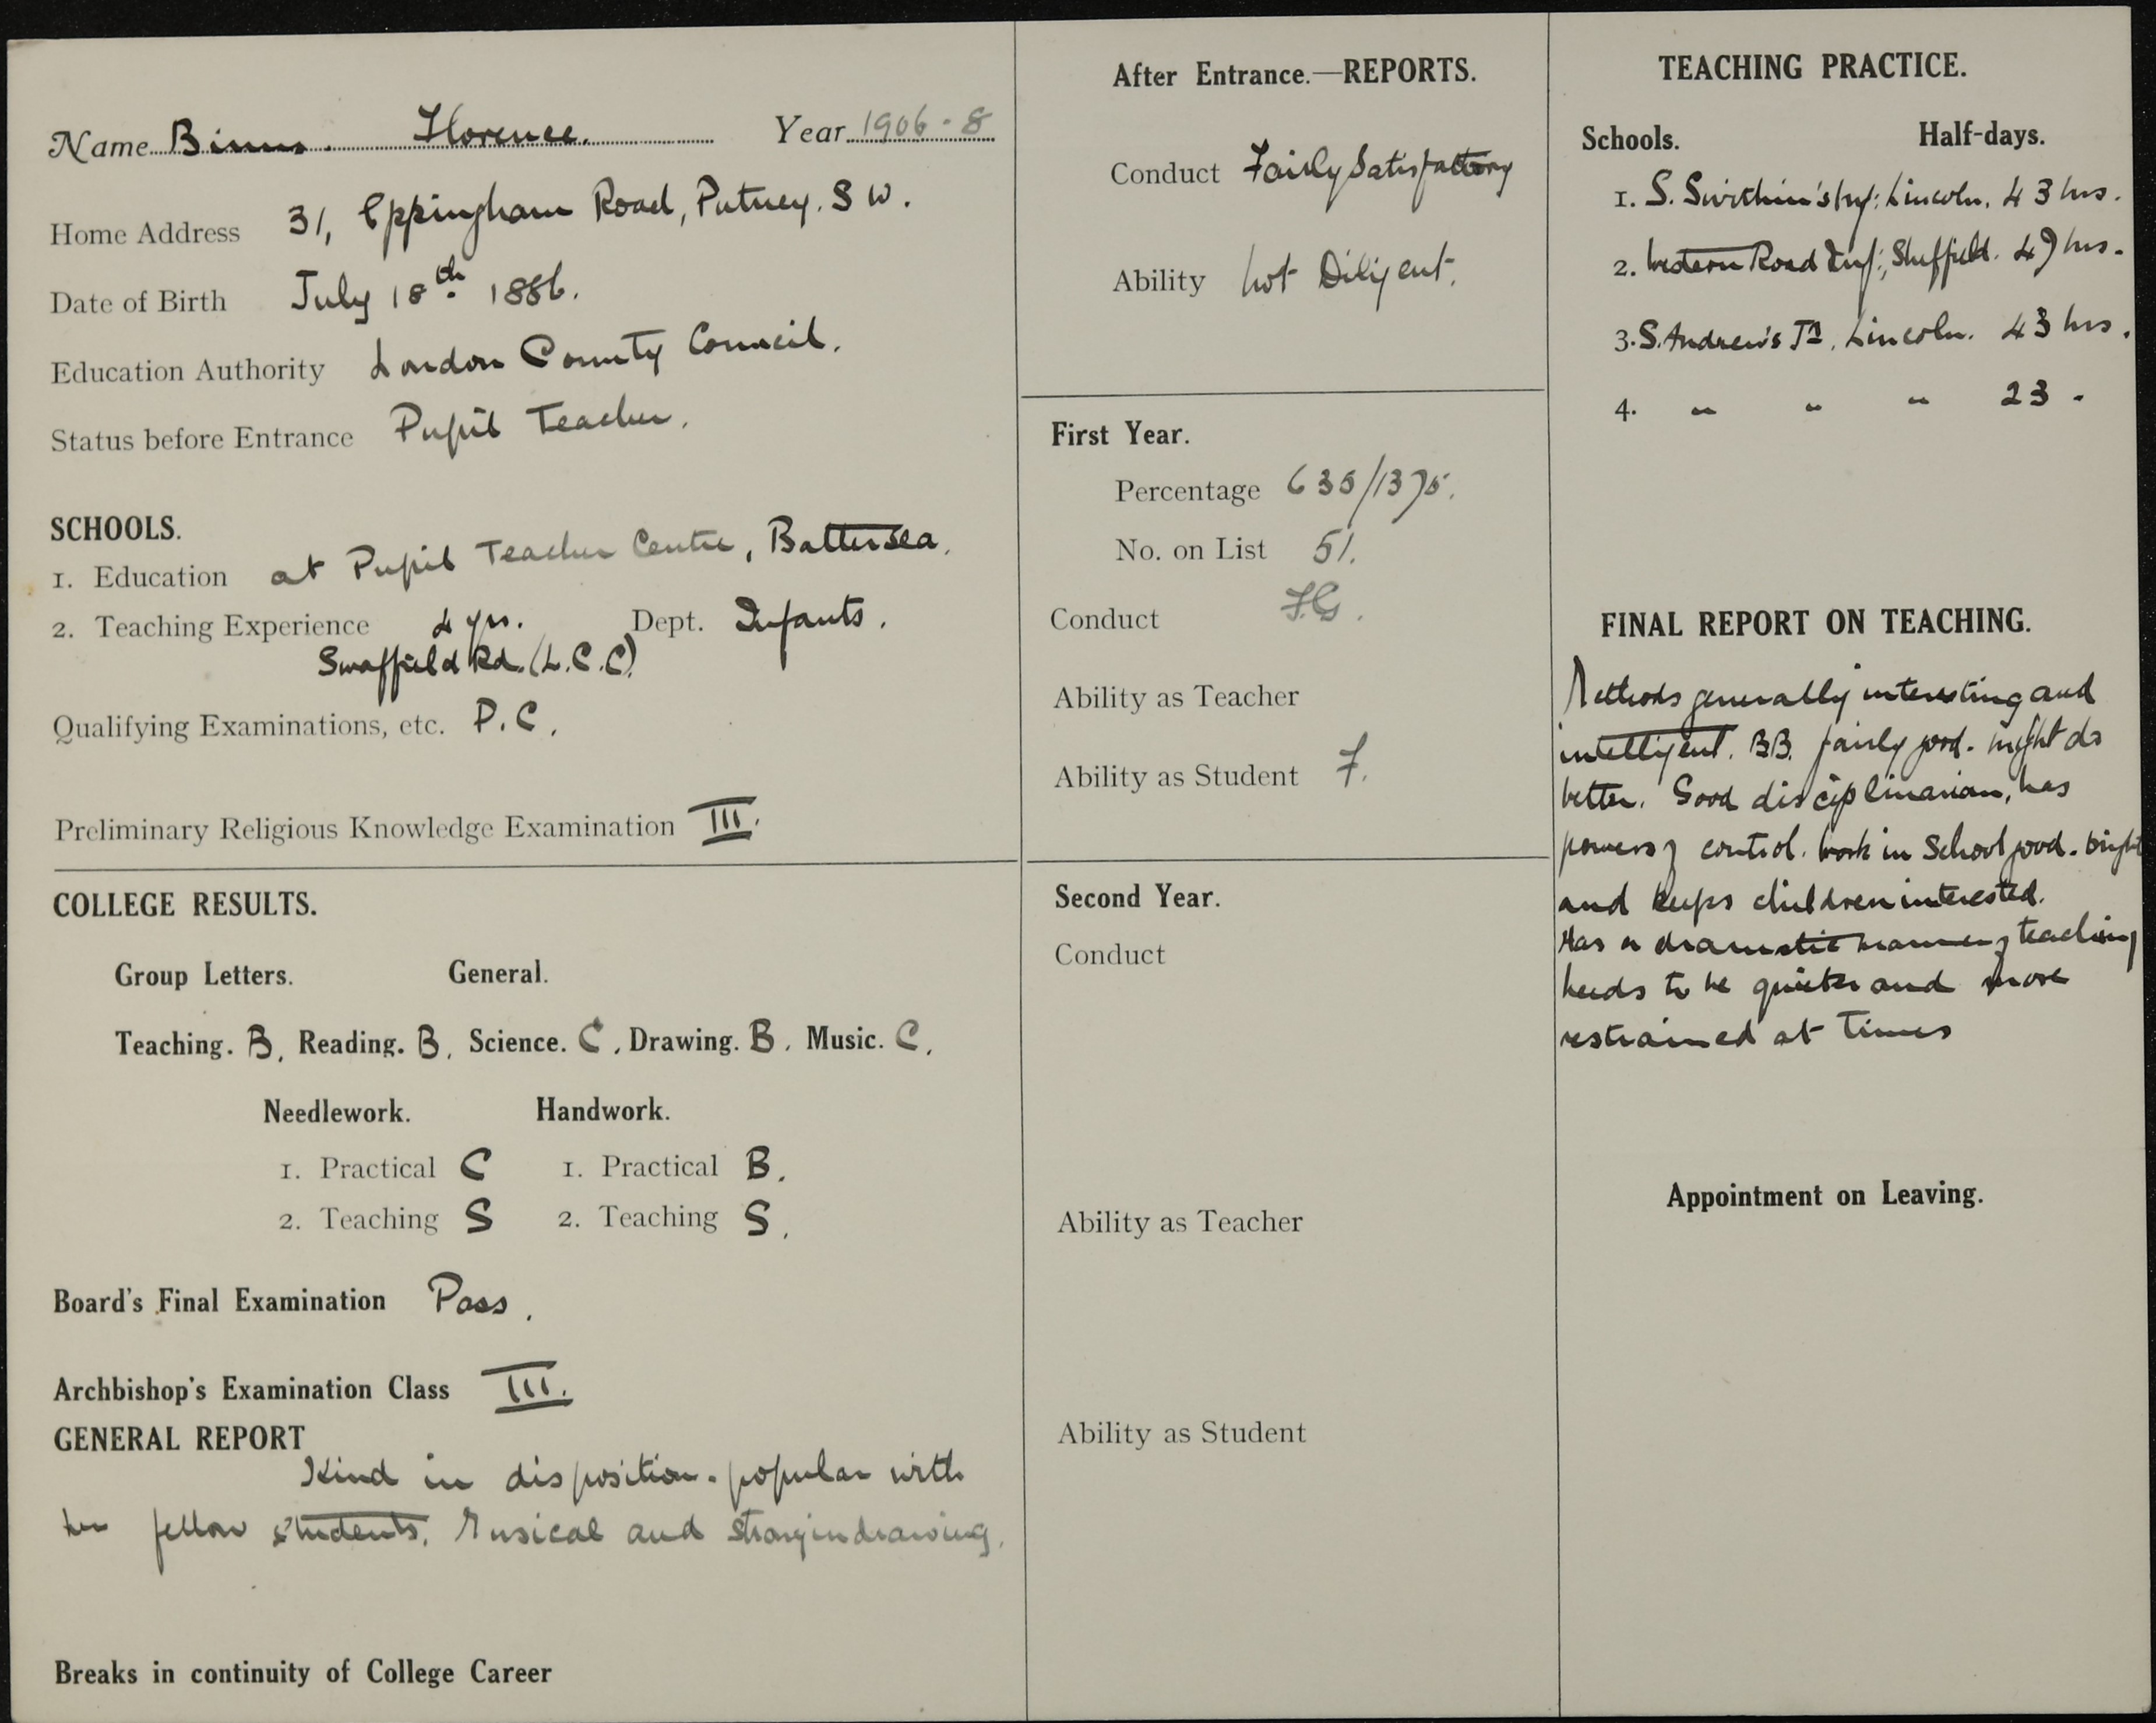 Name Binns. Florence. Year 1906-8
Home Address 31, Eppingham Road, Putney. S W.
Date of Birth July 18th 1886.
Education Authority London County Council.
Status before Entrance Pupil Teacher.
SCHOOLS.
1. Education at Pupil Teacher Centre, Battersea.
2. Teaching Experience 4 yrs. Dept. Infants.
Swaffield Rd. (L.C.C)
Qualifying Examinations, etc. P.C.
Preliminary Religious Knowledge Examination III.
COLLEGE RESULTS.
Group Letters. General.
Teaching. B, Reading. B, Science. C, Drawing. B, Music. C,
Needlework. Handwork.
1. Practical C 1. Practical B.
2. Teaching S 2. Teaching S.
Board's Final Examination Pass.
Archbishop's Examination Class III.
GENERAL REPORT
Kind in disposition. popular with
her fellow students. Musical and strong in drawing.
Breaks in continuity of College Career
After Entrance.—REPORTS.
Conduct Fairly Satisfactory
Ability not Diligent.
First Year.
Percentage 635/1375.
No. on List 51.
Conduct F.G.
Ability as Teacher
Ability as Student F.
Second Year.
Conduct
Ability as Teacher
Ability as Student
TEACHING PRACTICE.
Schools. Half-days.
1. S. Swithin's Inf: Lincoln. 43 hrs.
2. Western Road Inf:, Sheffield. 47 hrs.
3. S. Andrew's , Lincoln. 43 hrs.
4. " " " 23.
FINAL REPORT ON TEACHING.
Methods generally interesting and
intelligent. BB. fairly good. might do
better. Good disciplinarian, has
powers of control. Work in School good. bright
and keeps children interested.
Has a dramatic manner of teaching
needs to be quieter and more
restrained at times
Appointment on Leaving.